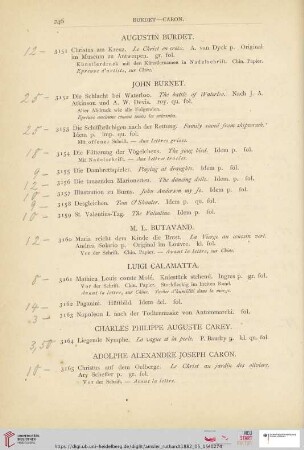 246
BURDET—CARON.
AUGUSTIN BURDET.
12 — 3151 Christus am Kreuz. Le Christ en croix. A. van Dyck p. Original
im Museum zu Antwerpen. gr. fol.
Künstlerdruck mit den Künstlernamen in Nadelschrift. Chin. Papier.
Epreuve d'artiste, sur Chine.
JOHN BURNET.
25 — 3152 Die Schlacht bei Waterloo. The battle of Waterloo. Nach J. A.
Atkinson und A. W. Devis. roy. qu. fol.
Alter Abdruck
Epreuve ancienne
25 — 3153 Die Schiffbrüchigen nach der Rettung. Family saved from shipwreck.
Idem p. roy. qu. fol.
Mit offener Schrift. — Avec lettres grises.
18 — 3154 Die Fütterung der Vögelchens. The ping bird. Idem p. fol.
Mit Nadelschrift. — Aux lettres tracées.
9 — 3155 Die Dambrettspieler. Playing at draughts. Idem p. fol.
12 — 3156 Die tanzenden Marionetten. The dancing dolls. Idem p. fol.
10 — 3157 Illustration zu Burns. John Anderson my jo. Idem p. fol.
9 — 3158 Desgleichen. Tom O'Shanter. Idem p. fol.
10 — 3159 St. Valentins-Tag. The Valentine. Idem p. fol.
M. L. BUTAVAND.
12 — 3160 Maria reicht dem Kinde die Brust. La Vierge au coussin verd.
Andrea Solario p. Original im Louvre. kl. fol.
Vor der Schrift. Chin. Papier. — Avant la lettre, sur Chine.
LUIGI CALAMATTA.
8 — 3161 Mathieu Louis comte Molé. Kniestück stehend. Ingres p. gr. fol.
Vor der Schrift. Chin. Papier. Stockfleckig im breiten Rand.
Avant la lettre, sur Chine. Taches d'humidité dans la marge.
14 — 3162 Paganini. Hüftbild. Idem del. fol.
3 — 3163 Napoleon I. nach der Todtenmaske von Antommarchi. fol.
CHARLES PHILIPPE AUGUSTE CAREY.
3,50 3164 Liegende Nymphe. La vague et la perle. P. Baudry p. kl. qu. fol.
ADOLPHE ALEXANDRE JOSEPH CARON.
10 — 3165 Christus auf dem Oelberge. Le Christ au jardin des oliviers.
Ary Scheffer p. gr. fol.
Vor der Schrift. — Avant la lettre.
UNIVERSITÄTS-
BIBLIOTHEK
HEIDELBERG